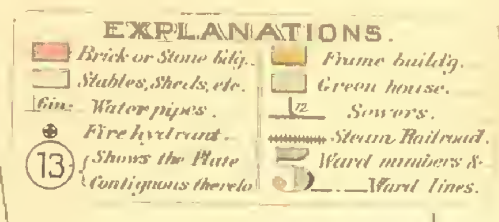 EXPLANATIONS.
Brick or Stone bldg.
Stables, Sheds, etc.
6in. Water pipes.
Fire hydrant.
13 Shows the Plate
Contiguous thereto
Frame buildg.
Green house.
12 Sewers.
Steam Railroad.
Ward numbers &
Ward lines.